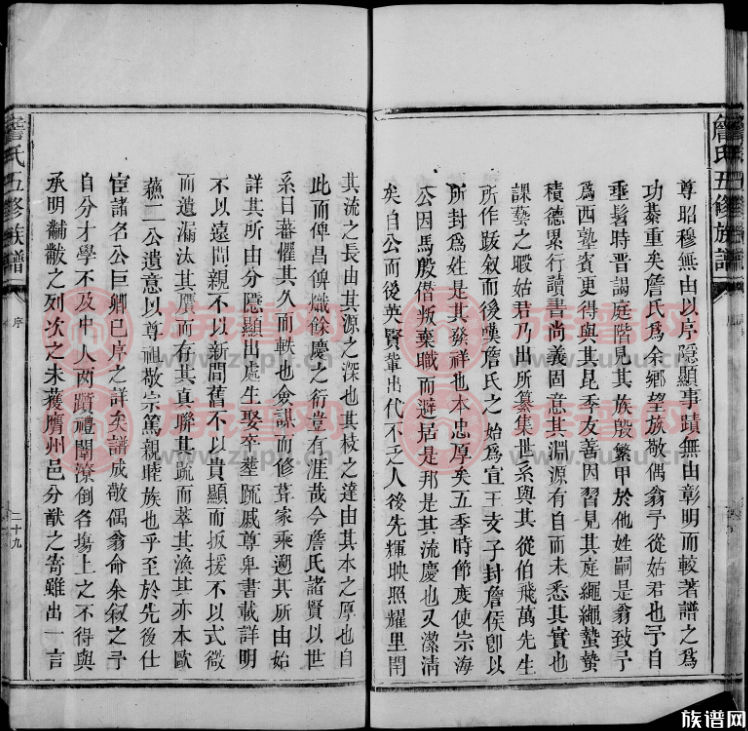 詹氏五修族譜
序
尊昭穆無由以序隱顯事蹟無由彰明而較著譜之為
功綦重矣詹氏為余鄉望族敬偶翁予從姑君也予自
垂髫時晋謁庭階見其族殷繁甲於他姓嗣是翁致予
為西塾賓更得與其昆季友善因習見其庭繩繩蟄蟄
積德累行讀書尚義固意其淵源有自而未悉其實也
課藝之暇始君乃出所纂集世系與其從伯飛萬先生
所作跋敘而後嘆詹氏之始為宣王支子封詹侯卽以
所封為姓是其發祥也本忠厚矣五季時節度使宗海
公因馬殷僭叛棄職而避居是邦是其流慶也又潔清
矣自公而後英賢輩出代不乏人後先輝映照耀里閈
其流之長由其源之深也其枝之達由其本之厚也自
此而俾昌俾熾餘慶之衍豈有涯哉今詹氏諸賢以世
系日蕃懼其久而軼也僉謀而修葺家乘遡其所由始
詳其所由分隱顯出處生娶卒塟疏戚尊卑書載詳明
不以遠間親不以新間舊不以貴顯而扳援不以式微
而遺漏汰其贋而存其真聯其疏而萃其渙其亦本歐
蘓二公遺意以尊祖敬宗篤親睦族也乎至於先後仕
宦諸名公巨卿已序之詳矣譜成敬偶翁命余叙之予
自分才學不及中人两躓禮闈潦倒名塲上之不得與
承明黼黻之列次之未獲膺州邑分猷之寄雖出一言
詹氏五修族譜
序
二十九
族谱网
www.zupu.cn
族谱网
www.zupu.cn
族谱网
www.zupu.cn
族谱网
www.zupu.cn
族谱网